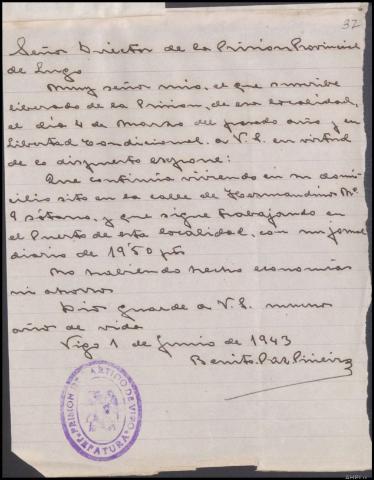 32
Señor Director de la Prision Provincial
de Lugo
Muy señor mio, el que suscribe
liberado de la Prision, de esa localidad,
el dia 4 de Marzo del pasado año y en
Libertad Condicional. a V.S. en virtud
de lo dispuesto expone:
Que continua viviendo en su domi
cilio sito en la calle de Hernandino Nº
9 sótano, y que sigue trabajando en
el Puerto de esta localidad, con un jornal
diario de 19'50 pts
No habiendo hecho economias
ni ahorros
Dios guarde a V.S. muchos
años de vida
Vigo 1 de Junio de 1943
Benito Paz Piñeiro
PRISION DE PARTIDO DE VIGO
JEFATURA
AHPLU